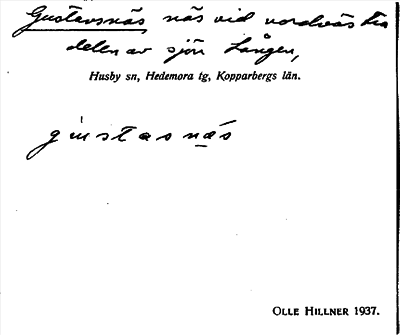 Gustavsnäs näs vid nordvästra
delen av sjön Lången,
Husby sn, Hedemora tg, Kopparbergs län.
gustasnäs
OLLE HILLNER 1937.